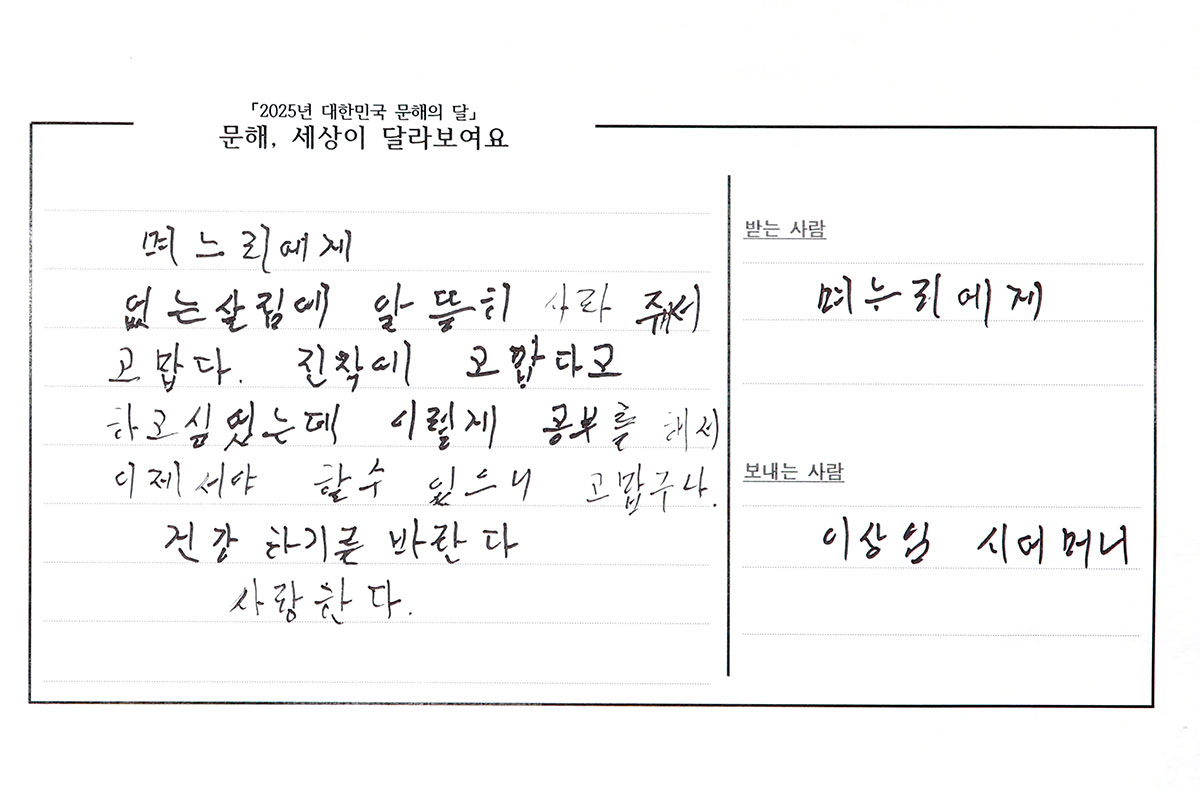 「2025년 대한민국 문해의 달」
문해, 세상이 달라보여요
며느리에게
없는살림에 알뜰히 사라 줘서
고맙다. 진작에 고맙다고
하고싶었는데 이렇게 공부를 해서
이제서야 할수 있으니 고맙구나.
건강 하기를 바란다
사랑한다.
받는 사람
며누리에게
보내는 사람
이상임 시어머니